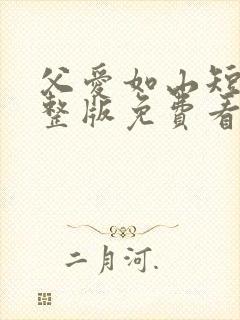 父爱如山短
整版免費看
二月河.